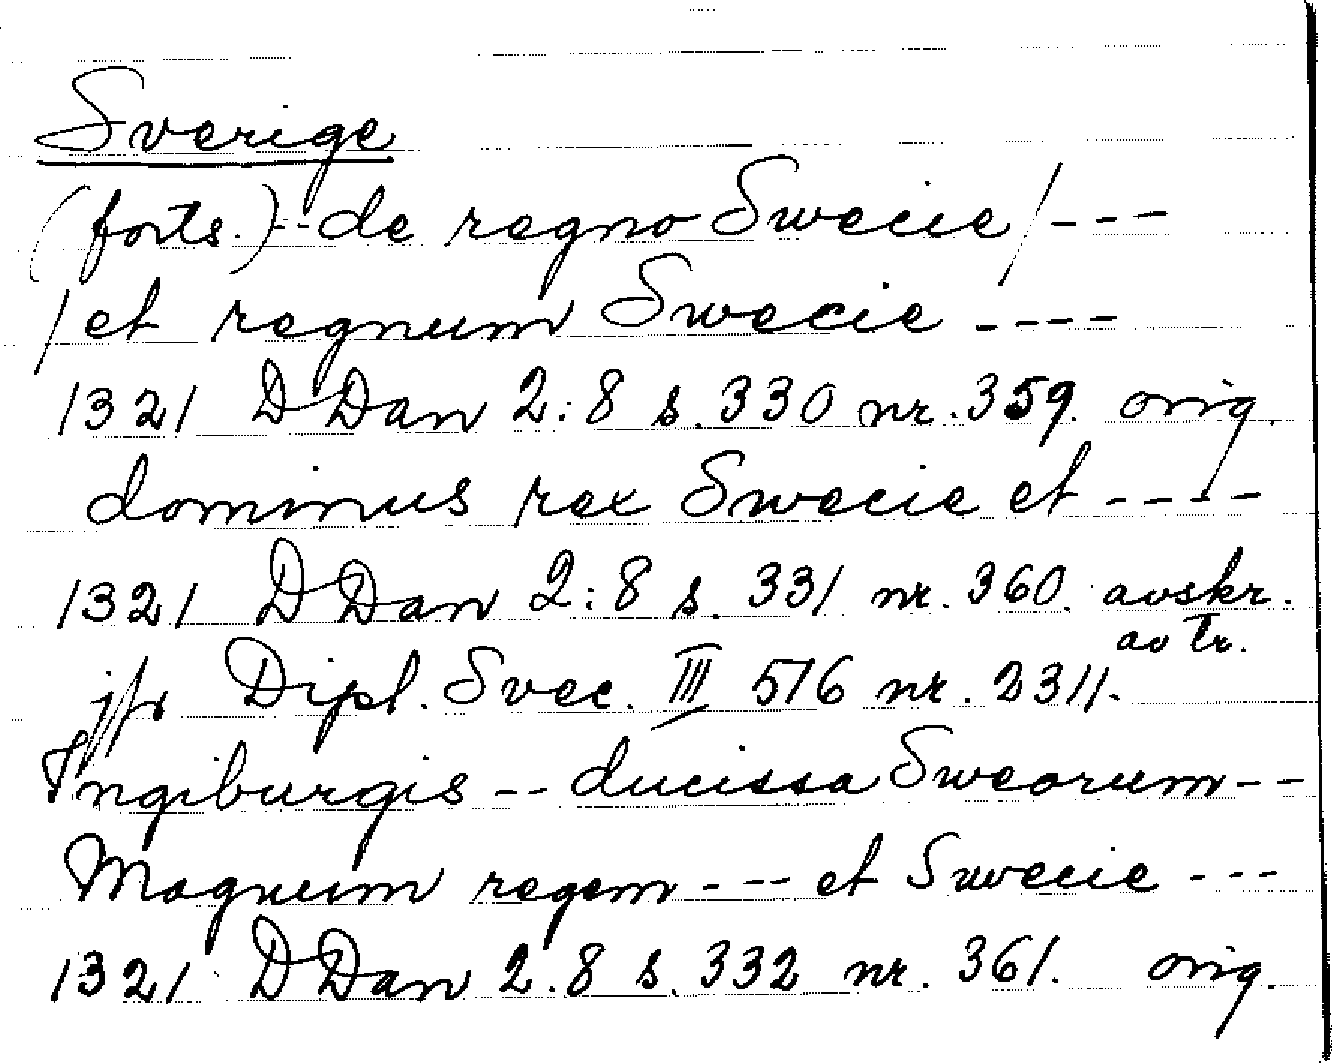 Sverige
(forts.) -- de regno Swecie / ---
/ et regnum Swecie ----
1321 D Dan 2:8 s. 330 nr. 359. orig.
dominus rex Swecie et ----
1321 D Dan 2:8 s. 331 nr. 360. avskr.
av tr.
jfr Dipl. Svec. III 516 nr. 2311.
Ingiburgis -- ducissa Sweorum --
Magnum regem --- et Swecie ---
1321 D Dan 2.8 s. 332 nr. 361. orig.